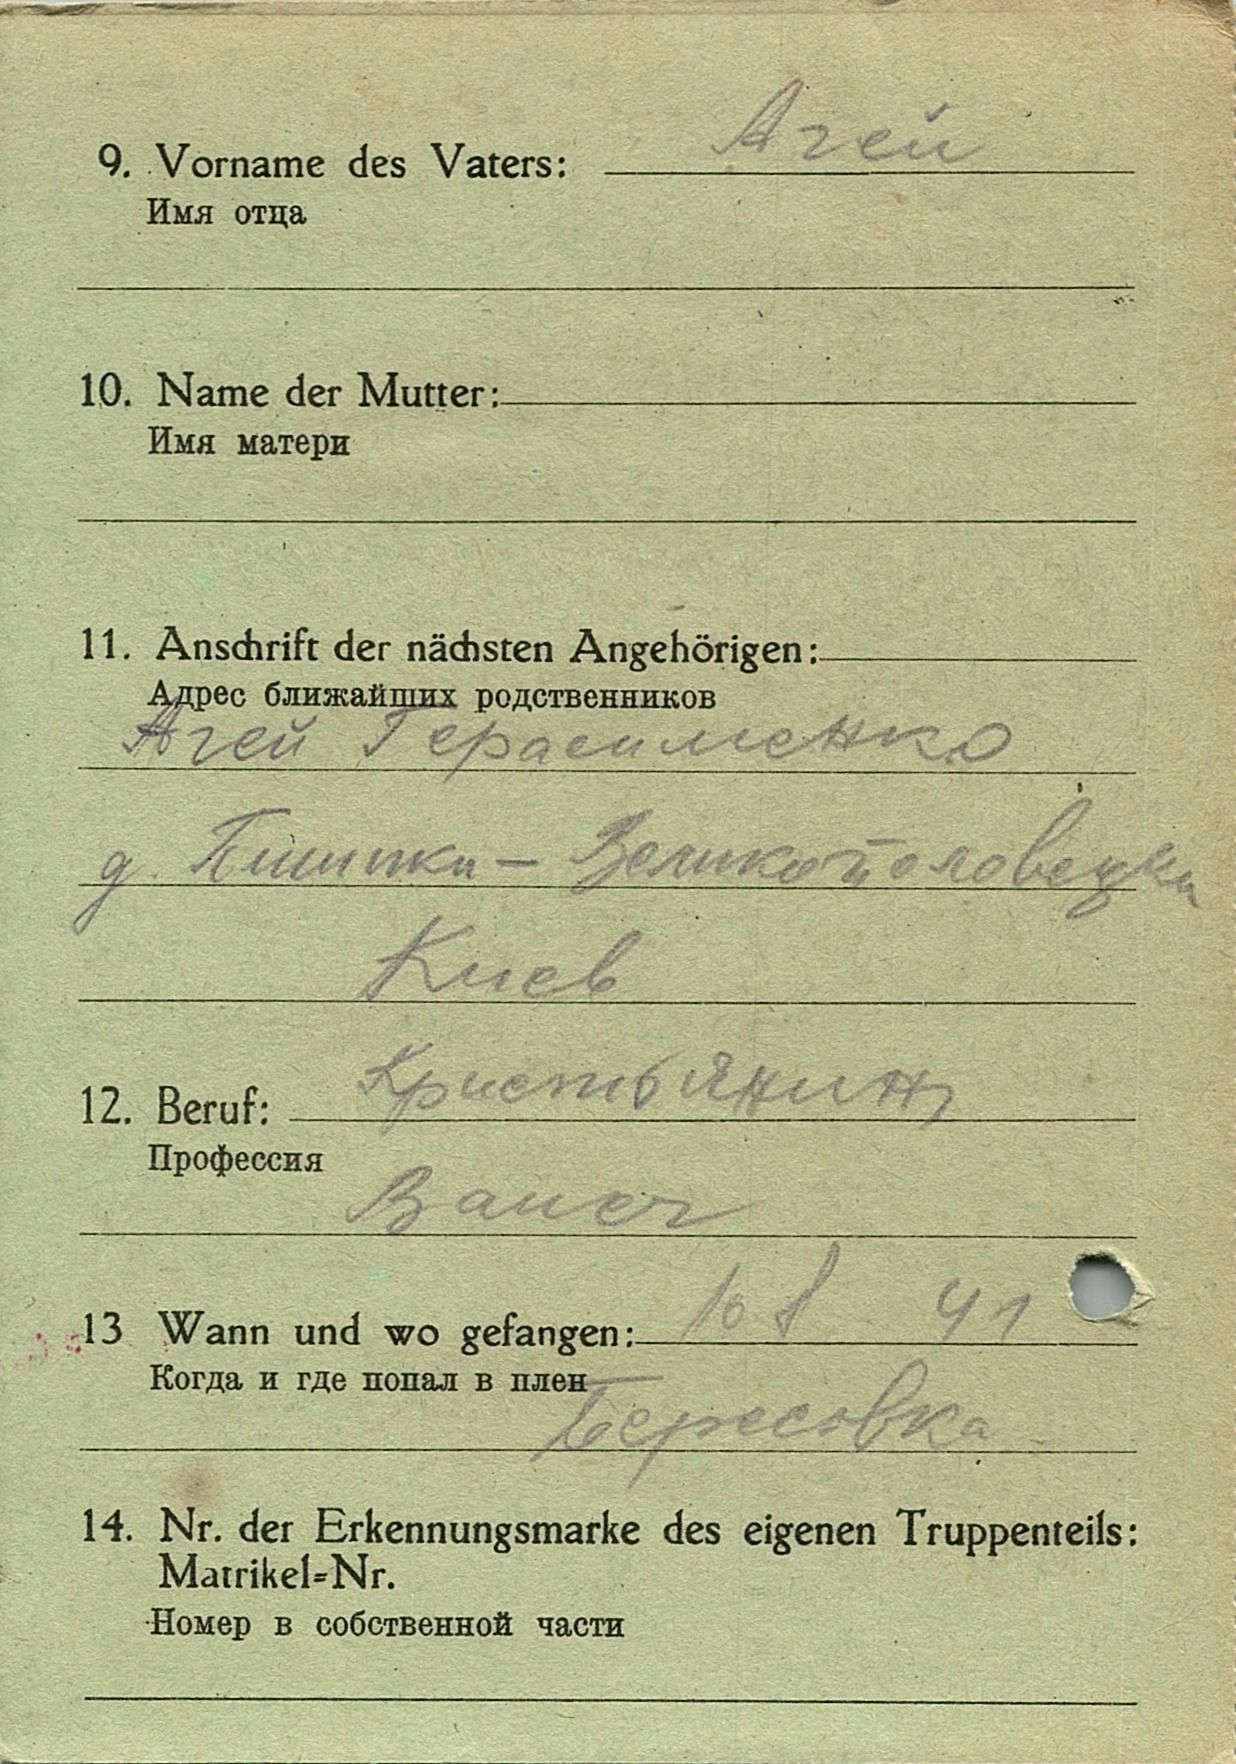 9. Vorname des Vaters: Агей
Имя отца
10. Name der Mutter:
Имя матери
11. Anschrift der nächsten Angehörigen:
Адрес ближайших родственников
Агей Герасименко
д. Великополовецки
Киев
12. Beruf: Кристьянин
Профессия
13 Wann und wo gefangen: 10 8 41
Когда и где попал в плен
Бересовка
14. Nr. der Erkennungsmarke des eigenen Truppenteils:
Matrikel-Nr.
Номер в собственной части